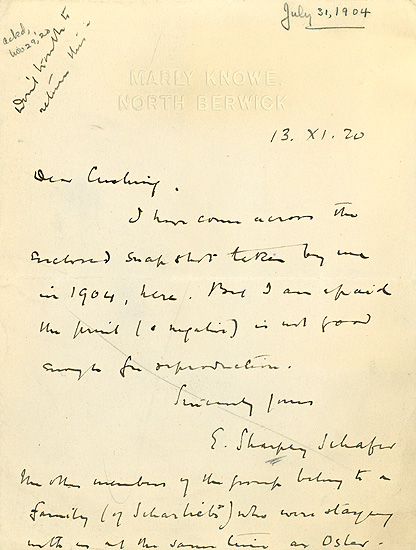 July 31, 1904
acked,
Nov 29, 20
Don't trouble to
return this.
MARLY KNOWE,
NORTH BERWICK
13. XI. 20
Dear Cushing.
I have come across the
enclosed snapshot taken by me
in 1904, here. But I am afraid
the print (& negative) is not good
enough for reproduction.
Sincerely yours
E. Sharpey Schafer
The other members of the group belong to a
family (of Scientists) who were staying
with us at the same time as Osler.